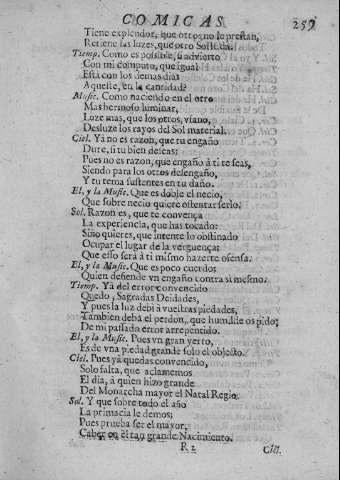 COMICAS 259
Tiene explendor, que otro no le prestan,
Retiene las luzes, que otro Sol le dà.
Tiemp. Como es possible, si advierto
Con mi computo, que igual
Està con los demas dias
Aqueste, en la cantidad?
Music. Como naciendo en el otro
Mas hermoso luminar,
Luze mas, que los otros, vfano,
Desluze los rayos del Sol material.
Ciel. Yà no es razon, que tu engaño
Dure, si tu bien deseas;
Pues no es razon, que engaño à ti te seas,
Siendo para los otros desengaño,
Y tu tema sustentes en tu daño.
El, y la Music. Que es doble el necio,
Que sobre necio quiere ostentarserlo.
Sol. Razon es, que te convença
La experiencia, que has tocado:
Sino quieres, que intente lo obstinado
Ocupar el lugar de la verguença;
Que esso serà à ti mismo hazerte ofensa.
El, y la Music. Que es poco cuerdo;
Quien defiende vn engaño contra si mesmo.
Tiemp. Yà del error convencido
Quedo, Sagradas Deidades,
Y pues la luz debì à vuestras piedades,
Tambien debà el perdon, que humilde os pido;
De mi passado error arrepentido.
El, y la Music. Pues vn gran yerro,
Es de vna piedad grande solo el objecto.
Ciel. Pues yà quedas convencido,
Solo falta, que aclamemos
El dia, à quien hizo grande
Del Monarcha mayor el Natal Regio.
Sol. Y que sobre todo el año
La primacia le demos;
Pues prueba ser el mayor,
Caber en èl tan grande Nacimiento.
R 2 Ciel.